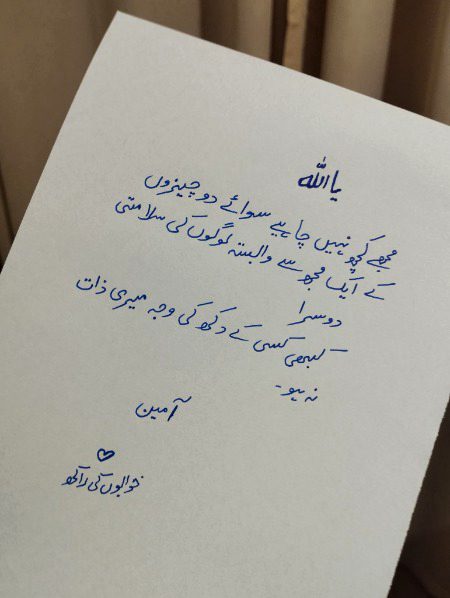 یا اللہ
مجھے کچھ نہیں چاہیے سوائے دو چیزوں
کے ایک مجھ سے وابستہ لوگوں کی سلامتی
دوسرا
کبھی کسی کے دکھ کی وجہ میری ذات
نہ ہو۔
آمین
خوابوں کی راکھ